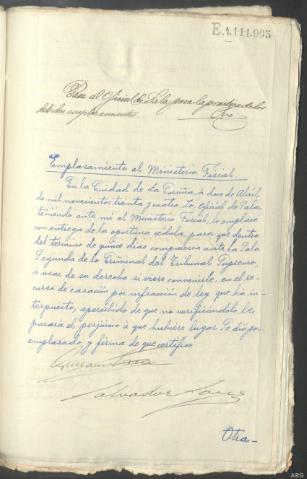 E.1.111.995
Pase al Oficial de Sala para la práctica de los
debidos emplazamientos.
Emplazamiento al Ministerio Fiscal.
En la Ciudad de La Coruña, a doce de Abril
de mil novecientos treinta y cuatro. Yo, Oficial de Sala
teniendo ante mí al Ministerio Fiscal, le emplacé
con entrega de la oportuna cédula, para que dentro
del término de quince días comparezca ante la Sala
Segunda de lo Criminal del Tribunal Supremo,
a usar de su derecho si viere convenirle, en el re-
curso de casación por infracción de ley que ha in-
terpuesto, apercibido de que no verificándolo, le
parará el perjuicio a que hubiere lugar. Se dió por
emplazado, y firma de que certifico.
Salvador
Otra-
ARG